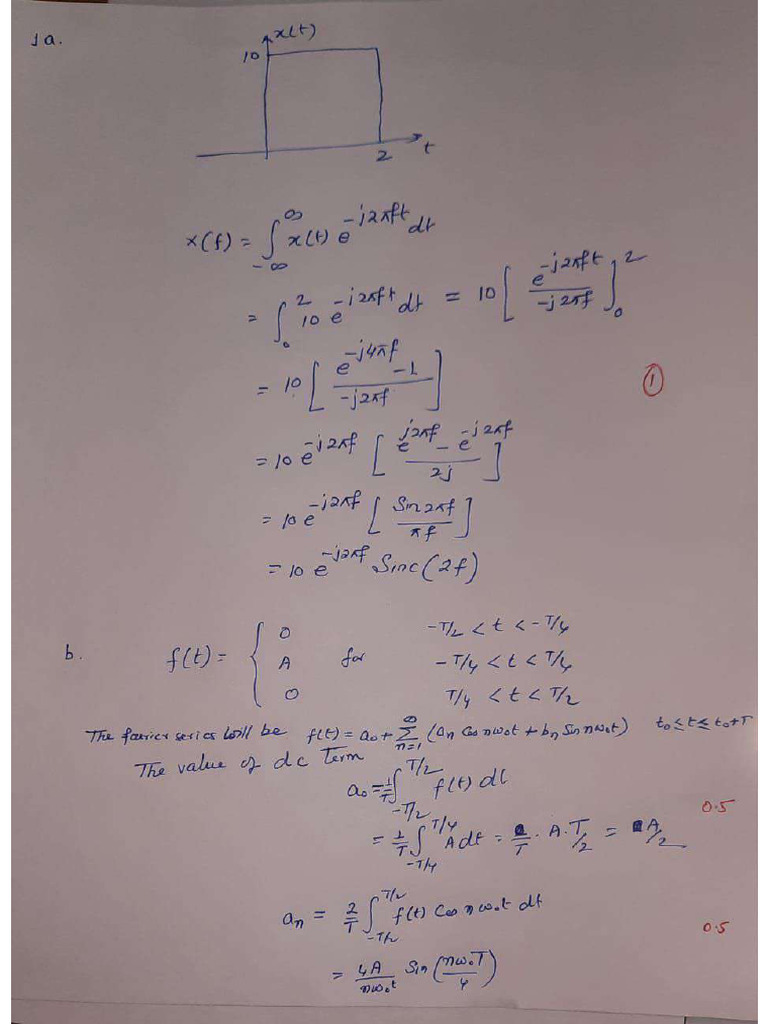 1a.
x(t)
10
2 t
X(f) = ∫_{-∞}^{∞} x(t) e^{-j2πft} dt
= ∫_{0}^{2} 10 e^{-j2πft} dt = 10 [ e^{-j2πft} / -j2πf ]_{0}^{2}
= 10 [ (e^{-j4πf} - 1) / -j2πf ]
1
= 10 e^{-j2πf} [ (e^{j2πf} - e^{-j2πf}) / 2j ]
= 10 e^{-j2πf} [ Sin2πf / πf ]
= 10 e^{-j2πf} Sinc(2f)
b. f(t) = { 0 -T/2 < t < -T/4
A for -T/4 < t < T/4
0 T/4 < t < T/2
The fourier series will be f(t) = a₀ + Σ_{n=1}^{∞} (aₙ Cos nω₀t + bₙ Sin nω₀t) t₀ ≤ t ≤ t₀+T
The value of dc term
a₀ = 1/T ∫_{-T/2}^{T/2} f(t) dt
0.5
= 1/T ∫_{-T/4}^{T/4} A dt = /T . A . T/2 = A/2
aₙ = 2/T ∫_{-T/2}^{T/2} f(t) Cos nω₀t dt
0.5
= 4A/nω₀t Sin (nω₀T/4)